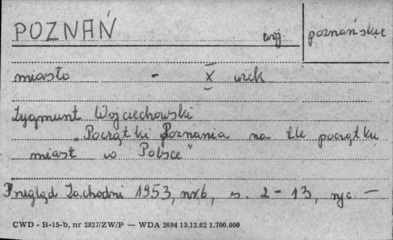 POZNAŃ woj. poznańskie
miasto - X wiek
Zygmunt Wojciechowski
"Początki Poznania na tle początku
miast w Polsce"
Przegląd Zachodni 1953, nr 6, s. 2-13, ryc —
CWD - B-15-b, nr 2827/ZW/P — WDA 2694 13.12.62 1.700.000